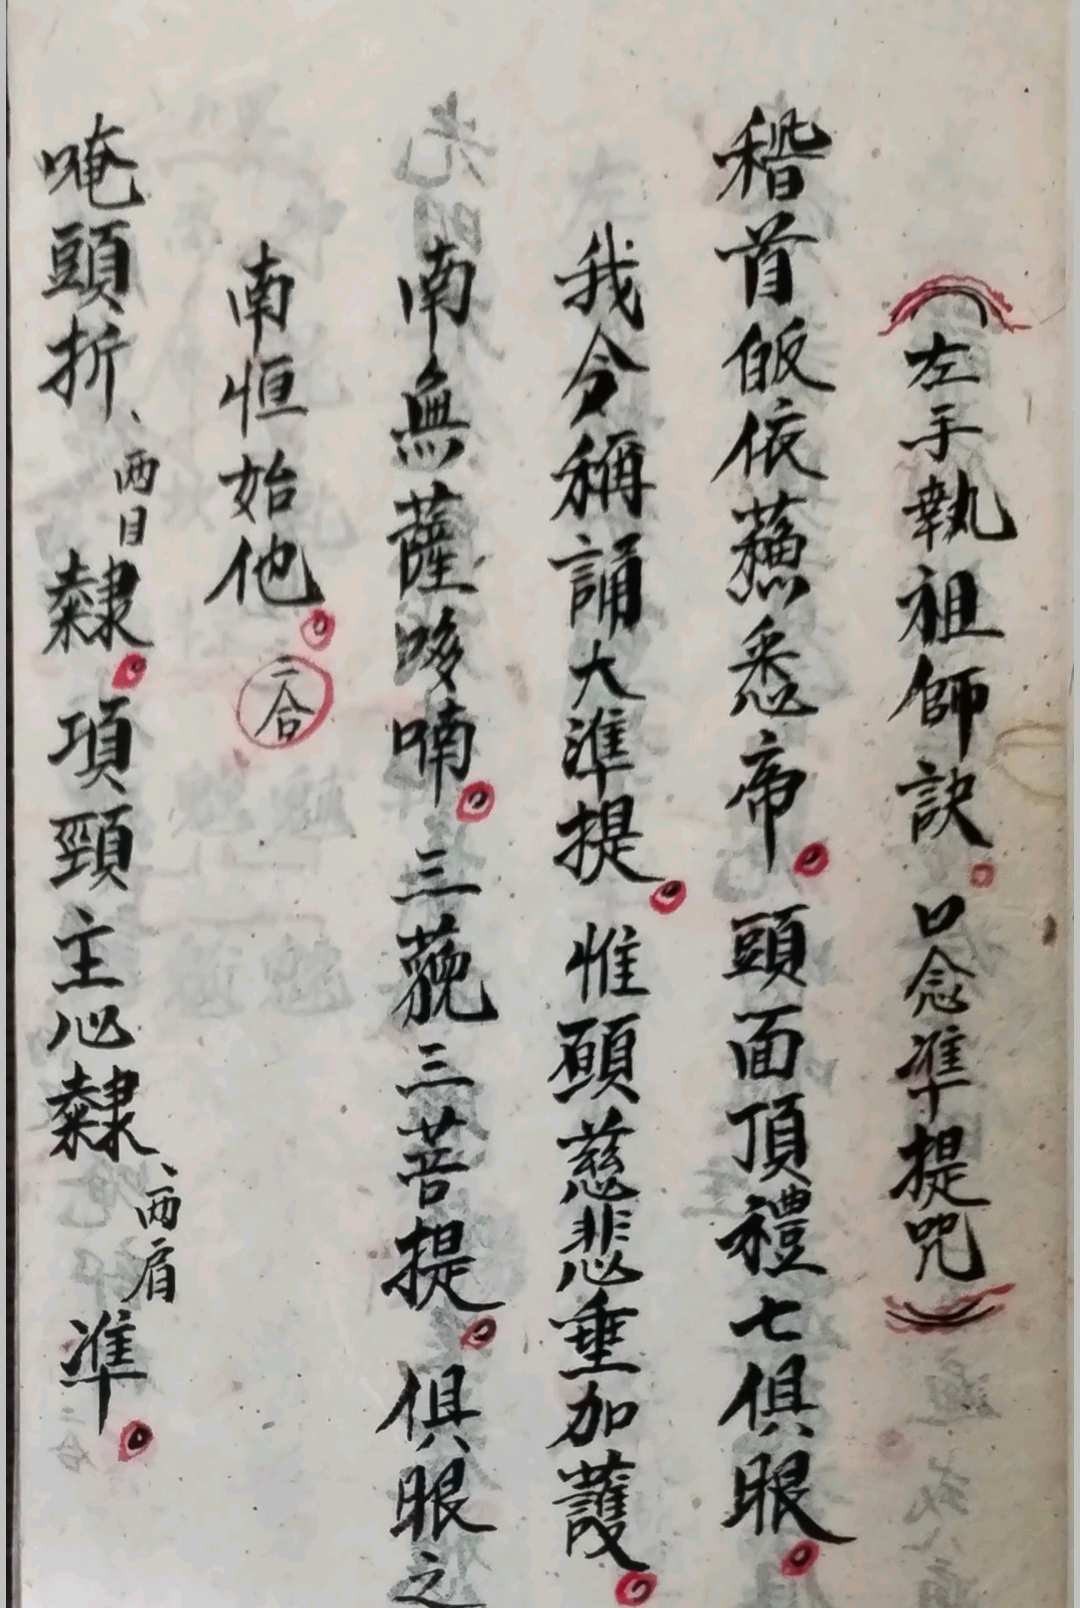 （左手執祖師訣。口念準提咒）
稽首皈依蘓悉帝。頭面頂禮七俱眼。
我今稱誦大準提。惟願慈悲垂加護。
南無薩哆喃。三藐三菩提。俱眼之
南恒始他。二合
唵頭折、兩目隸。項頸主心隸、兩肩準。